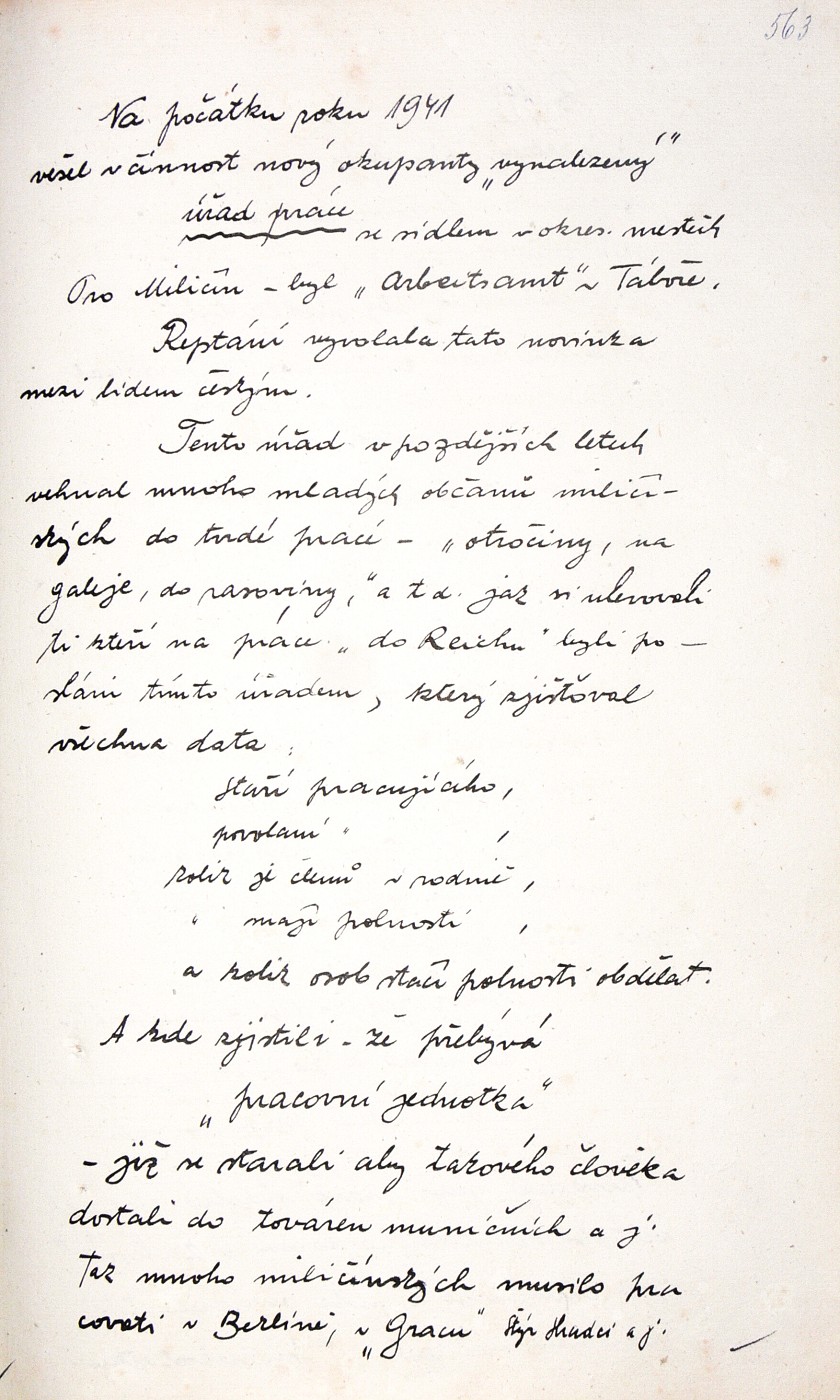 563
Na počátku roku 1941
vešel v činnost nový okupanty „vynalezený"
úřad práce
se sídlem v okres. městech
Pro Miličín – byl „Arbeitsamt" v Táboře.
Reptání vyvolala tato novinka
mezi lidem českým.
Tento úřad v pozdějších letech
vehnal mnoho mladých občanů miličín-
ských do tvrdé práce – „otročiny, na
galeje, do rasoviny," a t d. jak si ulevovali
ti kteří na práce „do Reichu" byli po –
sláni tímto úřadem, který zjišťoval
všechna data:
stáří pracujícího,
povolání " ,
kolik je členů v rodině,
" mají polností ,
a kolik osob stačí polnosti obdělat.
A kde zjistili – že přebývá
„pracovní jednotka"
– již se starali aby takového člověka
dostali do továren muničních a j.
Tak mnoho miličínských musilo pra
covati v Berlíně, v „Gracu" Štýr. Hradci a j.